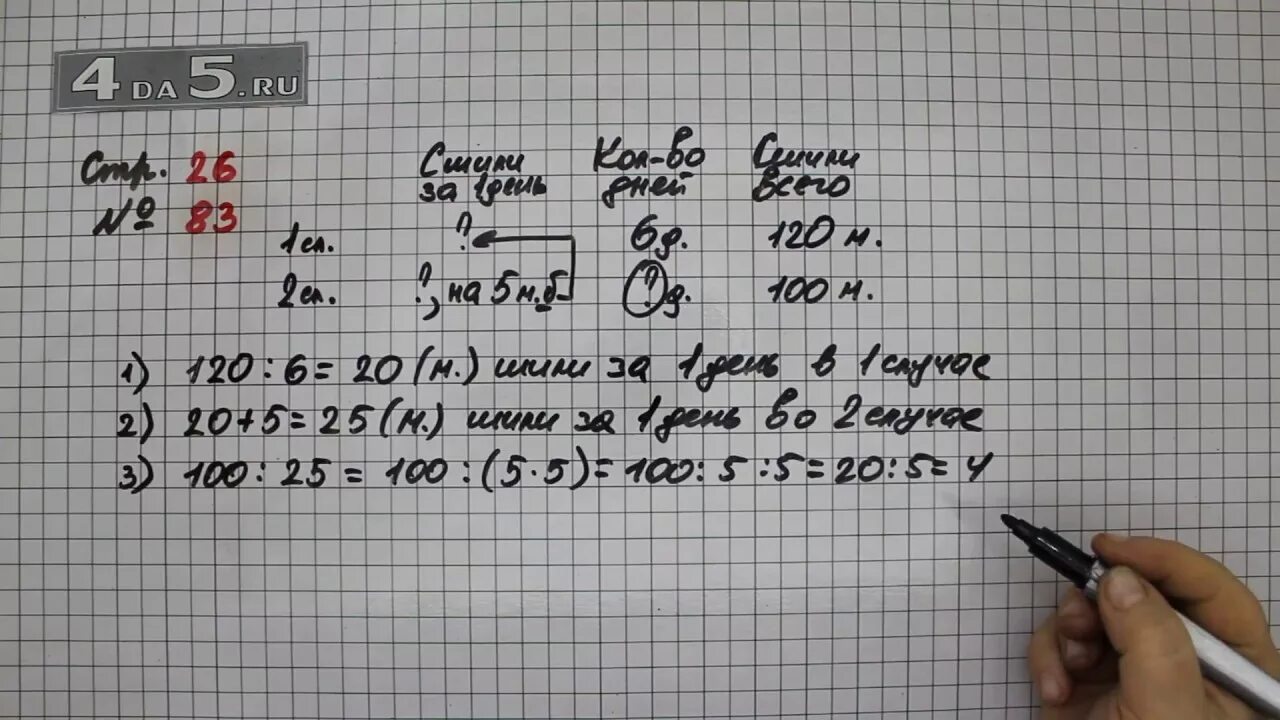 4DA5.RU
Стр. 26
№ 83
Сшили за 1 день Кол-во дней Сшили всего
1 сл. ? 6 д. 120 м.
2 сл. ?, на 5 м. б. ? д. 100 м.
1) 120 : 6 = 20 (м.) шили за 1 день в 1 случае
2) 20 + 5 = 25 (м.) шили за 1 день во 2 случае
3) 100 : 25 = 100 : (5 · 5) = 100 : 5 : 5 = 20 : 5 = 4